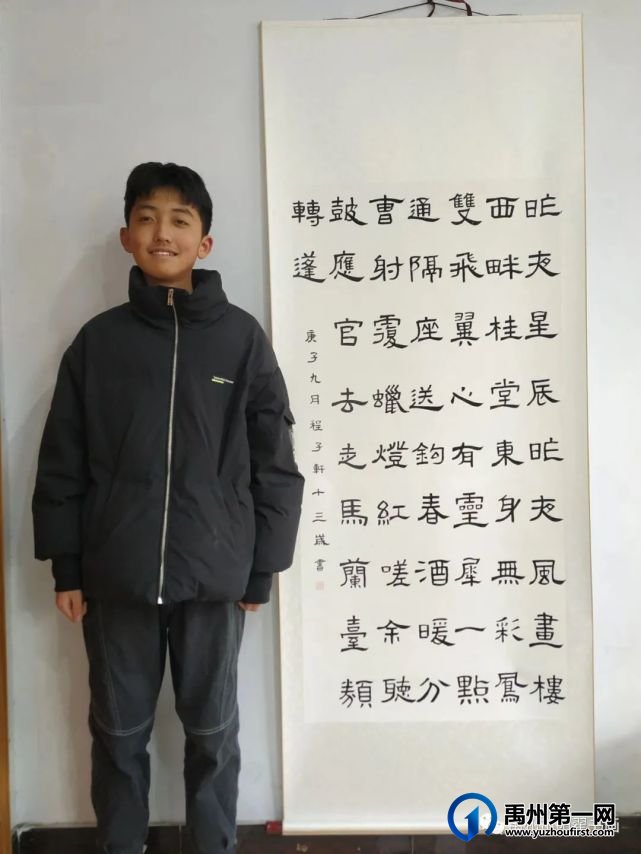 昨夜星辰昨夜風畫樓
西畔桂堂東身無彩鳳
雙飛翼心有靈犀一點
通隔座送鉤春酒暖分
曹射覆蠟燈紅嗟余聽
鼓應官去走馬蘭臺類
轉蓬
庚子九月程子軒十三歲書
禹州第一网
www.yuzhoufirst.com